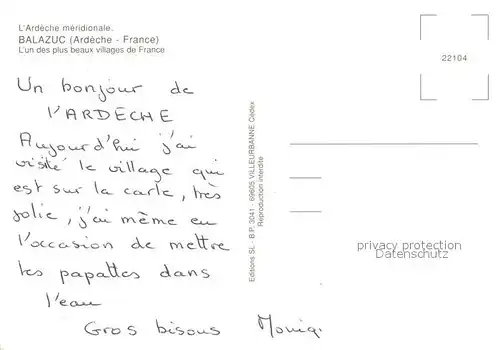 L'Ardèche méridionale.
BALAZUC (Ardèche - France)
L'un des plus beaux villages de France
22104
Un bonjour de
l'ARDÈCHE
Aujourd'hui j'ai
visité le village qui
est sur la carte, très
jolie, j'ai même eu
l'occasion de mettre
les papattes dans
l'eau
Gros bisous Moniq.
Editions SL - B.P. 3041 - 69605 VILLEURBANNE Cédex
Reproduction interdite
privacy protection
Datenschutz